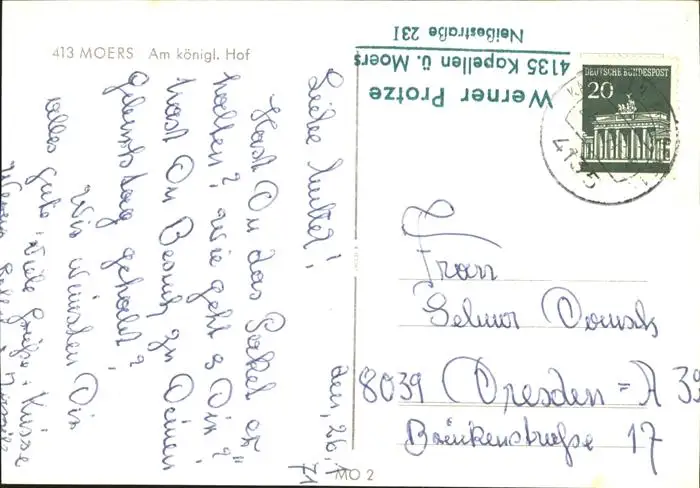 413 MOERS Am königl. Hof
Werner Protze
4135 Kapellen ü. Moers
Neißestraße 231
DEUTSCHE BUNDESPOST
20
4135
den, 26.
71
Liebe Mutter!
Hast Du das Paket er
halten? Wie geht es Dir?
hast Du Besuch zu Deinen
Geburtstag gehabt?
Wir wünschen Dir
alles gute, viele Grüße + Küsse
Werner
Frau
8039 Dresden - A 39
17
MO 2